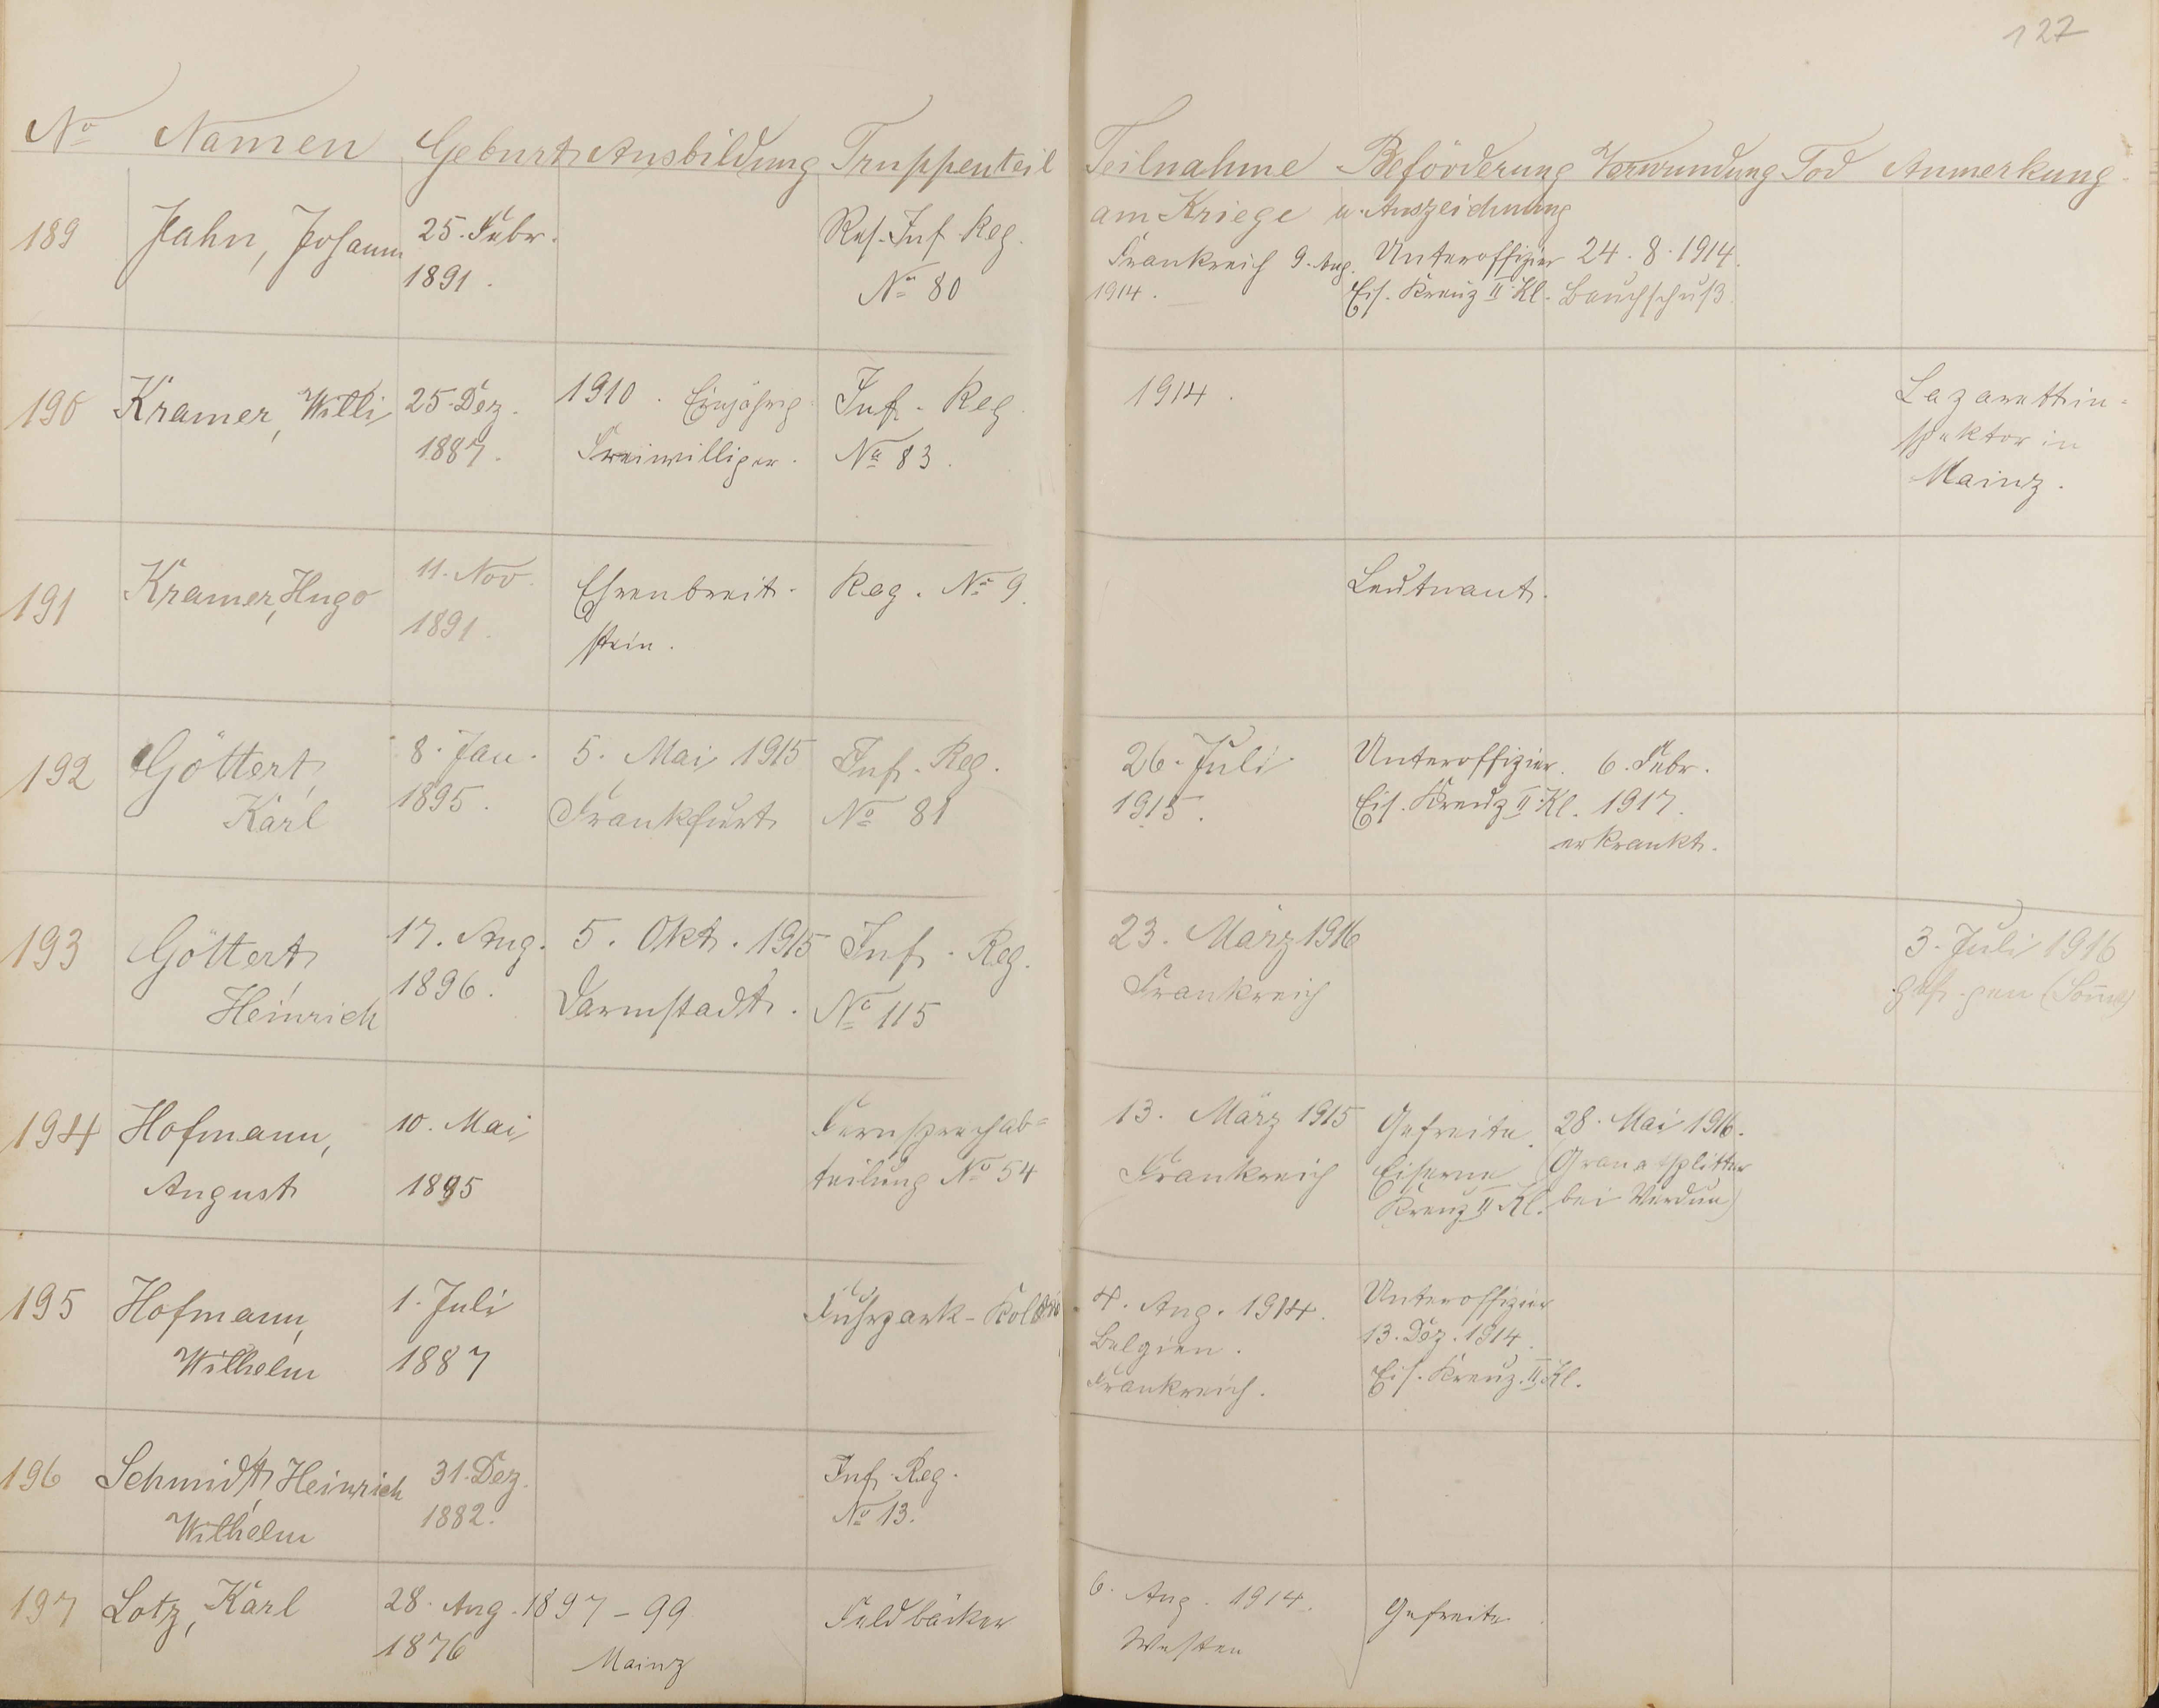 127
No Namen Geburt Ausbildung Truppenteil Teilnahme Beförderung Verwundung Tod Anmerkung.
am Kriege u. Auszeichnung
189 Jahn, Johann 25. Febr. 1891. Res. Inf. Reg. No 80 Frankreich 9. Aug. 1914. Unteroffizier Eis. Kreuz II Kl. 24. 8. 1914. Bauchschuß
190 Kramer, Willi 25. Dez. 1887. 1910. Einjährig Freiwilliger. Inf. Reg. No 83. 1914. Lazarettin=
spektor in
Mainz.
191 Kramer, Hugo 11. Nov. 1891. Ehrenbreit-
stein. Reg. No 9. Leutnant.
192 Göttert,
Karl 8. Jan. 1895. 5. Mai 1915 Frankfurt Inf. Reg. No 81 26. Juli 1915. Unteroffizier. Eis. Kreuz II Kl. 6. Febr. 1917. erkrankt.
193 Göttert,
Heinrich 17. Aug. 1896. 5. Okt. 1915 Darmstadt. Inf. Reg. No 115 23. März 1916 Frankreich 3. Juli 1916
(Somme)
194 Hofmann,
August 10. Mai 1895 Fernsprechab=
teilung No 54 13. März 1915 Frankreich Gefreite. Eiserne Kreuz II Kl. 28. Mai 1916. (Granatsplitter
bei Verdun)
195 Hofmann,
Wilhelm 1. Juli 1887 Fuhrpark- 4. Aug. 1914. Belgien. Frankreich. Unteroffizier 13. Dez. 1914. Eis. Kreuz. II Kl.
196 Schmidt, Heinrich
Wilhelm 31. Dez. 1882. Inf. Reg. No 13.
197 Lotz, Karl 28. Aug. 1876 1897-99 Mainz Feldbäcker 6. Aug. 1914. Westen Gefreite.